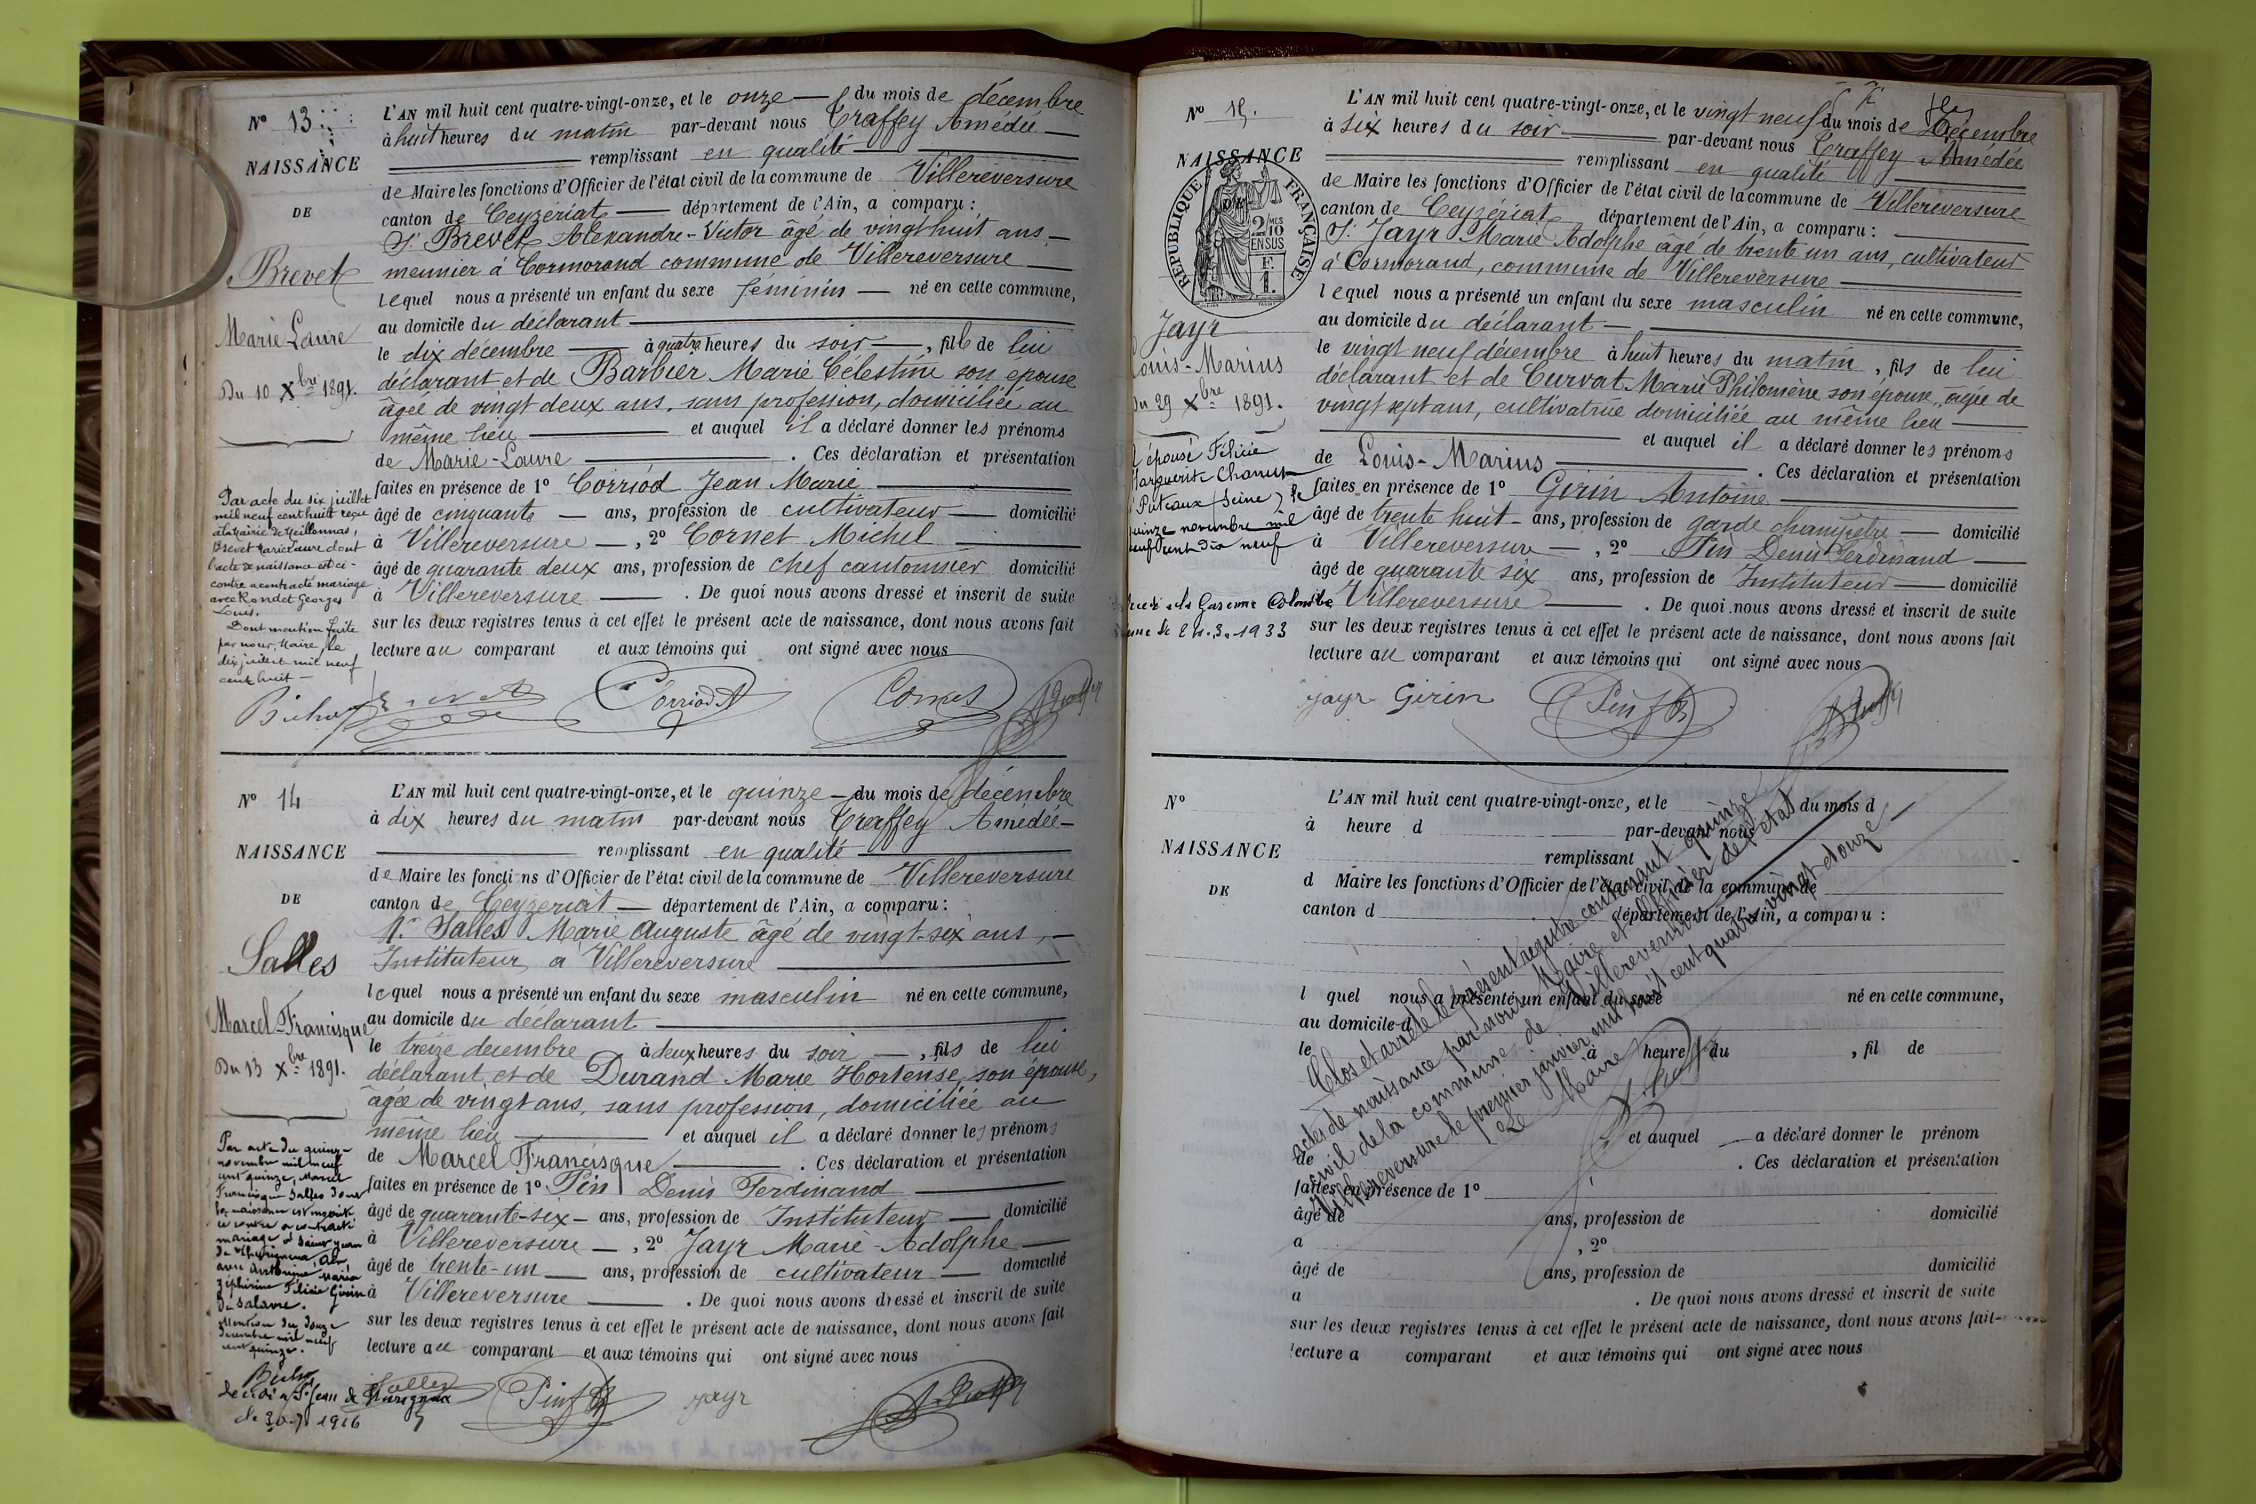 N° 13
NAISSANCE
DE
Brevet
Marie Laure
Du 10 Xbre 1891.
Par acte du six juillet
mil neuf cent huit reçu
à la Mairie de Meillonnas,
Brevet Marie Laure dont
l'acte de naissance est ci-
contre a contracté mariage
avec Rondet Georges
Louis.
Dont mention faite
par nous, Maire, le
dix juillet mil neuf
cent huit —
L'AN mil huit cent quatre-vingt-onze, et le onze — du mois de décembre
à huit heures du matin par-devant nous Traffey Amédée —
remplissant en qualité —
de Maire les fonctions d'Officier de l'état civil de la commune de Villereversure
canton de Ceyzériat — département de l'Ain, a comparu :
Sr Brevet Alexandre-Victor âgé de vingt huit ans, —
meunier à Cormorand commune de Villereversure —
lequel nous a présenté un enfant du sexe féminin — né en cette commune,
au domicile du déclarant —
le dix décembre — à quatre heures du soir —, fille de lui
déclarant et de Barbier Marie Célestine son épouse
âgée de vingt deux ans, sans profession, domiciliée au
même lieu — et auquel il a déclaré donner les prénoms
de Marie-Laure — . Ces déclaration et présentation
faites en présence de 1° Corriod Jean Marie —
âgé de cinquante — ans, profession de cultivateur — domicilié
à Villereversure — , 2° Cornet Michel —
âgé de quarante deux ans, profession de chef cantonnier domicilié
à Villereversure — . De quoi nous avons dressé et inscrit de suite
sur les deux registres tenus à cet effet le présent acte de naissance, dont nous avons fait
lecture au comparant et aux témoins qui ont signé avec nous
Corriod Cornet
N° 14
NAISSANCE
DE
Salles
Marcel Francisque
Du 13 Xbre 1891.
Par acte du quinze
novembre mil neuf
cent quinze, Marcel
Francisque Salles dont
la naissance est inscrite
ci contre a contracté
mariage à Saint Jean
de Thurigneux, Ain,
avec Antoinie Maria
Zéphirine Félicie Girin
de Salavre.
Mention du douze
décembre mil neuf
cent quinze.
décédé à St Jean de Thurigneux
le 30-7 1916
L'AN mil huit cent quatre-vingt-onze, et le quinze — du mois de décembre
à dix heures du matin par-devant nous Traffey Amédée —
remplissant en qualité —
de Maire les fonctions d'Officier de l'état civil de la commune de Villereversure
canton de Ceyzériat — département de l'Ain, a comparu :
Mr Salles Marie Auguste âgé de vingt-six ans, —
Instituteur à Villereversure —
lequel nous a présenté un enfant du sexe masculin né en cette commune,
au domicile du déclarant —
le treize décembre à deux heures du soir —, fils de lui
déclarant, et de Durand Marie Hortense, son épouse,
âgée de vingt ans, sans profession, domiciliée au
même lieu — et auquel il a déclaré donner les prénoms
de Marcel Francisque — . Ces déclaration et présentation
faites en présence de 1° Pin Denis Ferdinand —
âgé de quarante-six — ans, profession de Instituteur — domicilié
à Villereversure — , 2° Jayr Marie-Adolphe —
âgé de trente-un — ans, profession de cultivateur — domicilié
à Villereversure — . De quoi nous avons dressé et inscrit de suite
sur les deux registres tenus à cet effet le présent acte de naissance, dont nous avons fait
lecture au comparant et aux témoins qui ont signé avec nous
Salles Pin jayr
N° 15.
NAISSANCE
RÉPUBLIQUE FRANÇAISE
2/10 EN SUS
F. 1.
Jayr
Louis-Marius
Du 29 Xbre 1891.
épousé Félicie
Marguerite
Puteaux (Seine) le
quinze novembre mil
neuf cent dix neuf
Garenne Colombe
le 24.3.1933
L'AN mil huit cent quatre-vingt-onze, et le vingt neuf du mois de Décembre
à six heures du soir — par-devant nous Traffey Amédée
remplissant en qualité —
de Maire les fonctions d'Officier de l'état civil de la commune de Villereversure
canton de Ceyzériat département de l'Ain, a comparu : —
Sr Jayr Marie Adolphe âgé de trente un ans, cultivateur
à Cormorand, commune de Villereversure —
lequel nous a présenté un enfant du sexe masculin né en cette commune,
au domicile du déclarant —
le vingt neuf décembre à huit heures du matin, fils de lui
déclarant et de Curvat Marie Philomène son épouse, âgée de
vingt sept ans, cultivatrice domiciliée au même lieu —
et auquel il a déclaré donner les prénoms
de Louis-Marius — . Ces déclaration et présentation
faites en présence de 1° Girin Antoine —
âgé de trente huit — ans, profession de garde champêtre — domicilié
à Villereversure — , 2° Pin Denis Ferdinand —
âgé de quarante six ans, profession de Instituteur — domicilié
Villereversure — . De quoi nous avons dressé et inscrit de suite
sur les deux registres tenus à cet effet le présent acte de naissance, dont nous avons fait
lecture au comparant et aux témoins qui ont signé avec nous
jayr Girin Pin
N°
NAISSANCE
DE
L'AN mil huit cent quatre-vingt-onze, et le du mois d
à heure d par-devant nous
remplissant
d Maire les fonctions d'Officier de l'état civil de la commune de
canton d département de l'Ain, a comparu :
l quel nous a présenté un enfant du sexe né en cette commune,
au domicile d
le à heure du , fil de
et auquel a déclaré donner le prénom
de . Ces déclaration et présentation
faites en présence de 1°
âgé de ans, profession de domicilié
a , 2°
âgé de ans, profession de domicilié
a . De quoi nous avons dressé et inscrit de suite
sur les deux registres tenus à cet effet le présent acte de naissance, dont nous avons fait
lecture a comparant et aux témoins qui ont signé avec nous
Clos et arrêté le présent registre contenant quinze
actes de naissance par nous Maire et officier de l'état
civil de la commune de Villereversure
Villereversure le premier janvier mil huit cent quatre vingt douze
Le Maire